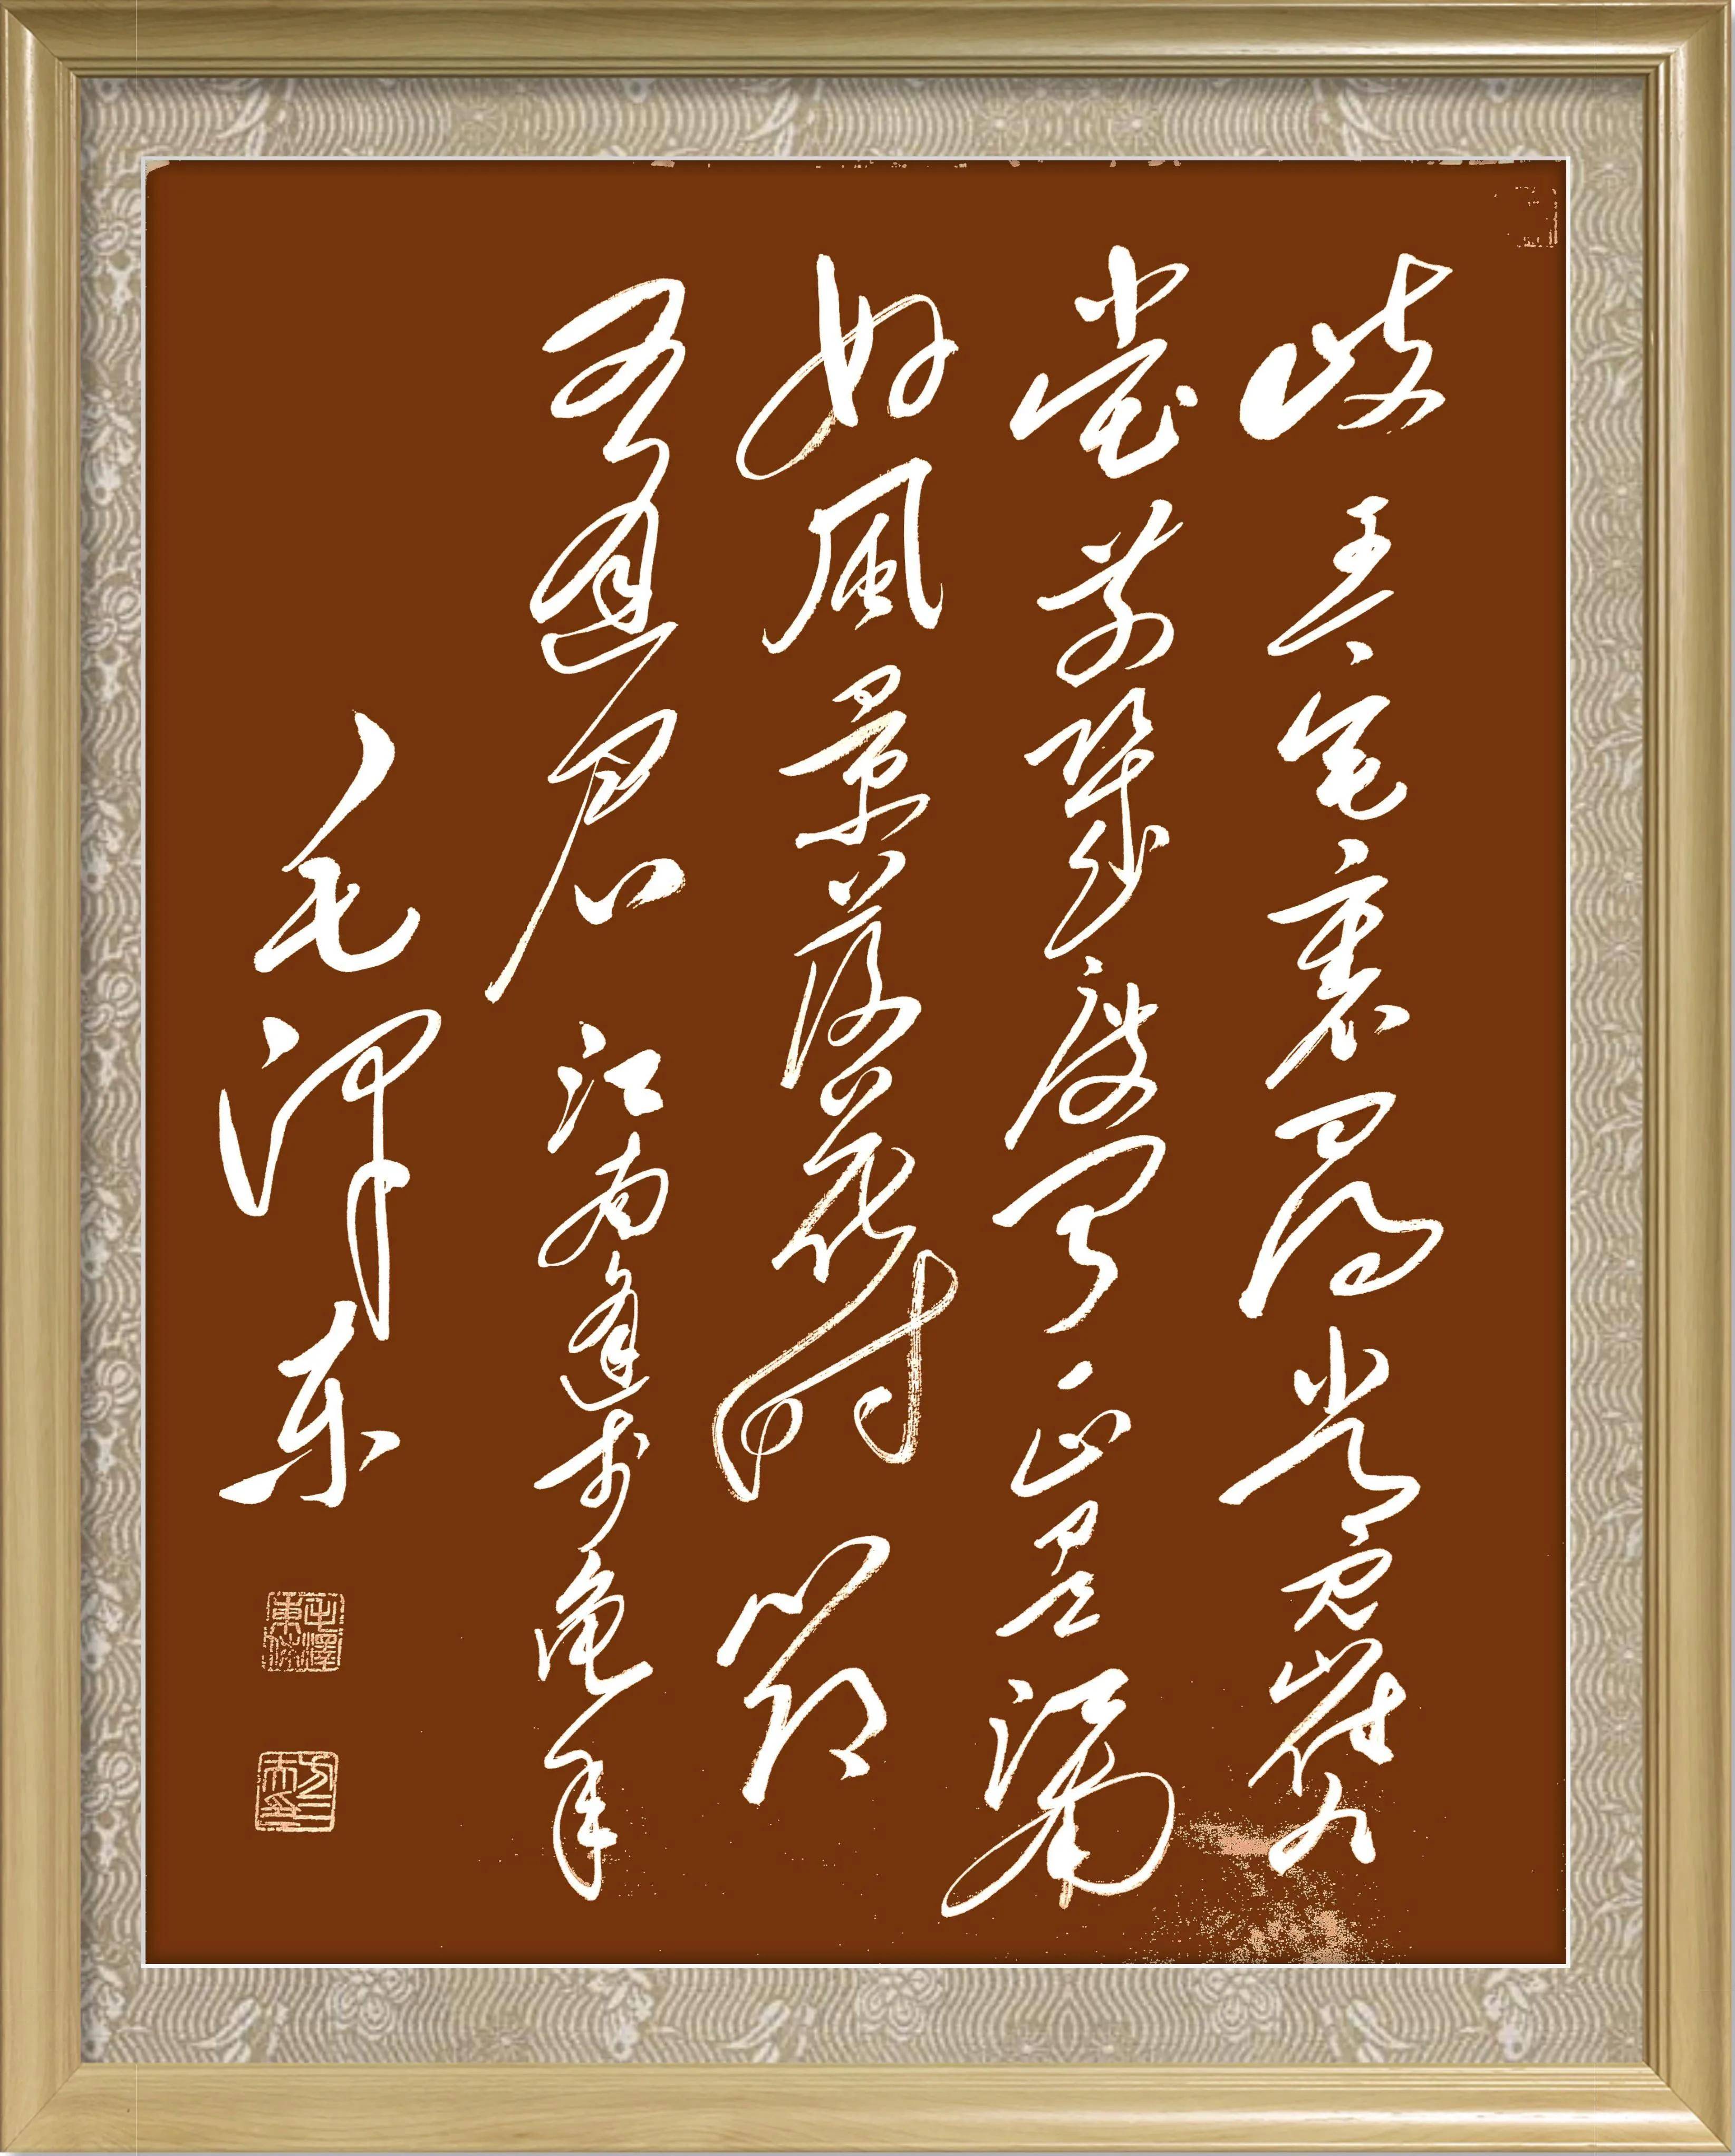 岐王宅裏尋常見崔九
堂前幾度聞正是江南
好風景落花時節
又逢君 江南逢李龟年
毛泽东